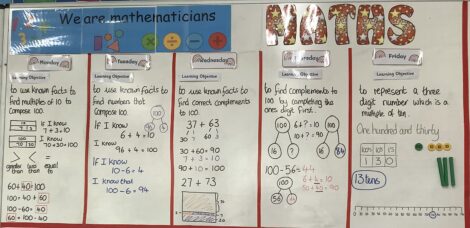 We are mathematicians
MATHS
Monday
Learning Objective
to use known facts to
find multiples of 10 to
compose 100.
If I know
7+3=10
I know
70+30=100
greater than
less than
equal to
60+40=100
100-40=60
100-60=40
60=100-40
Tuesday
Learning Objective
to use known facts to
find numbers that
compose 100.
100
96
4
If I know
6+4=10
I know
96+4=100
If I know
10-6=4
I know that
100-6=94
Wednesday
Learning Objective
to use known facts to
find correct complements
to 100.
37+63
30 7 60 3
30+60=90
7+3=10
90+10=100
27+73
Thursday
Learning Objective
to find complements to
100 by completing the
ones digit first.
100
16
84
6+?=10
10+?=90
100-56=44
6+4=10
50+40=90
100
56
Friday
Learning Objective
to represent a three
digit number which is a
multiple of ten.
One hundred and thirty
100s 10s 1s
1 3 0
13 tens